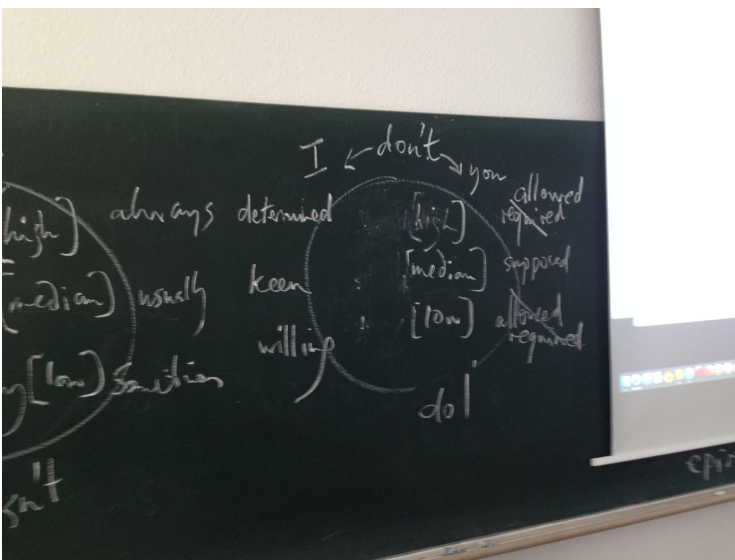 I ← don't → you
high] always determined [high] allowed
required
[median] usually keen [median] supposed
[low] willing [low] allowed
required
sometimes
do!
sn't
epis